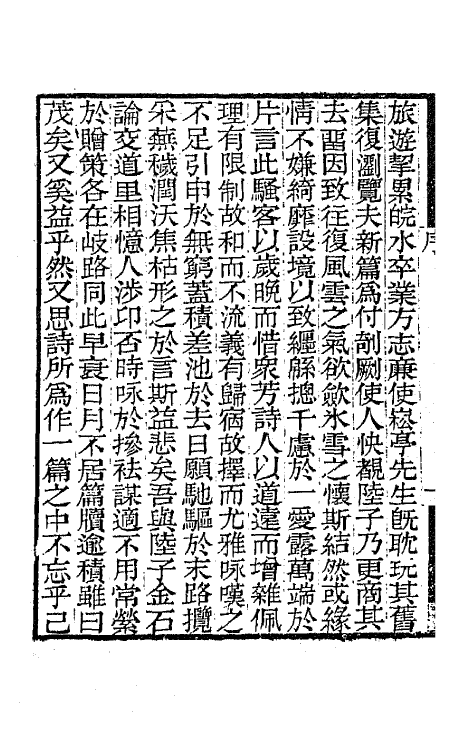 旅遊挈累皖水卒業方志廉使崧亭先生旣耽玩其舊
集復瀏覽夫新篇爲付剞劂使人快覩陸子乃更商其
去畱因致往復風雲之氣欲斂氷雪之懷斯結然或緣
情不嫌綺靡設境以致纒緜摠千慮於一愛露萬端於
片言此騷客以歲晚而惜衆芳詩人以道遠而增雜佩
理有限制故和而不流義有歸宿故擇而尤雅咏嘆之
不足引申於無窮蓋積差池於去日願馳驅於末路攬
采蕪穢潤沃焦枯形之於言斯益悲矣吾與陸子金石
論交道里相憶人涉卬否時咏於摻袪謀適不用常縈
於贈策各在歧路同此早衰日月不居篇牘逾積雖曰
茂矣又奚益乎然又思詩所爲作一篇之中不忘乎己
序
一